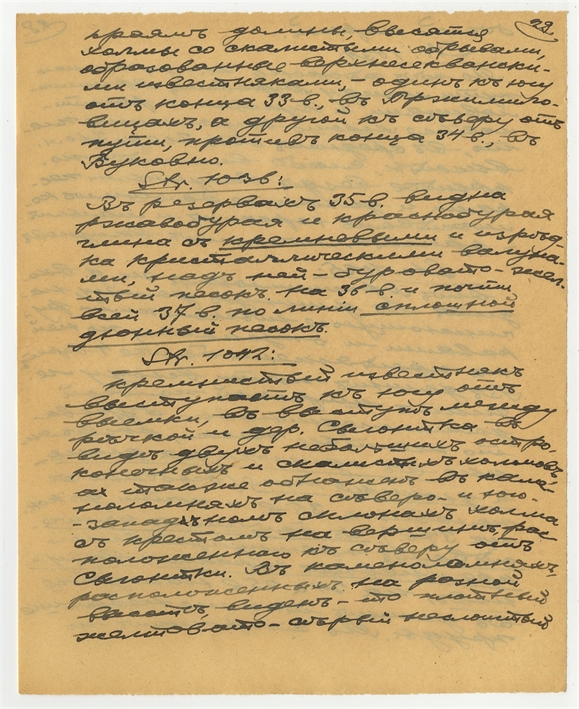 22
краямъ долины, высятся
холмы со скалистыми обрывами,
образованные верхнесеквански-
ми известняками, - одинъ къ югу
отъ конца 33-в., въ
, а другой къ северу отъ
пути, противъ конца 34 в., въ
Буковно.
Str. 103b:
Въ резервахъ 35-в. видна
ржавобурая и краснобурая
глина съ кремневыми и изред-
ка кристаллическими валуна-
ми, надъ ней - буровато-жел-
тый песокъ. на 36-в. и почти
всей 37 в. по линии сплошной
дюнный песокъ
Str. 104a:
Кремнистый известнякъ
выступаетъ къ югу отъ
выемки, въ выступе между
речкой и дер. въ
виде двухъ небольшихъ остро-
конечныхъ и скалистыхъ холмовъ,
а также обнаженъ въ каме-
ноломняхъ на северо- и юго-
-западномъ склонахъ холма
съ крестомъ на вершине, рас
положенного къ северу отъ
. Въ каменоломняхъ,
расположенныхъ на разной
высоте, виденъ - то плотный
желтовато-серый неслоистый